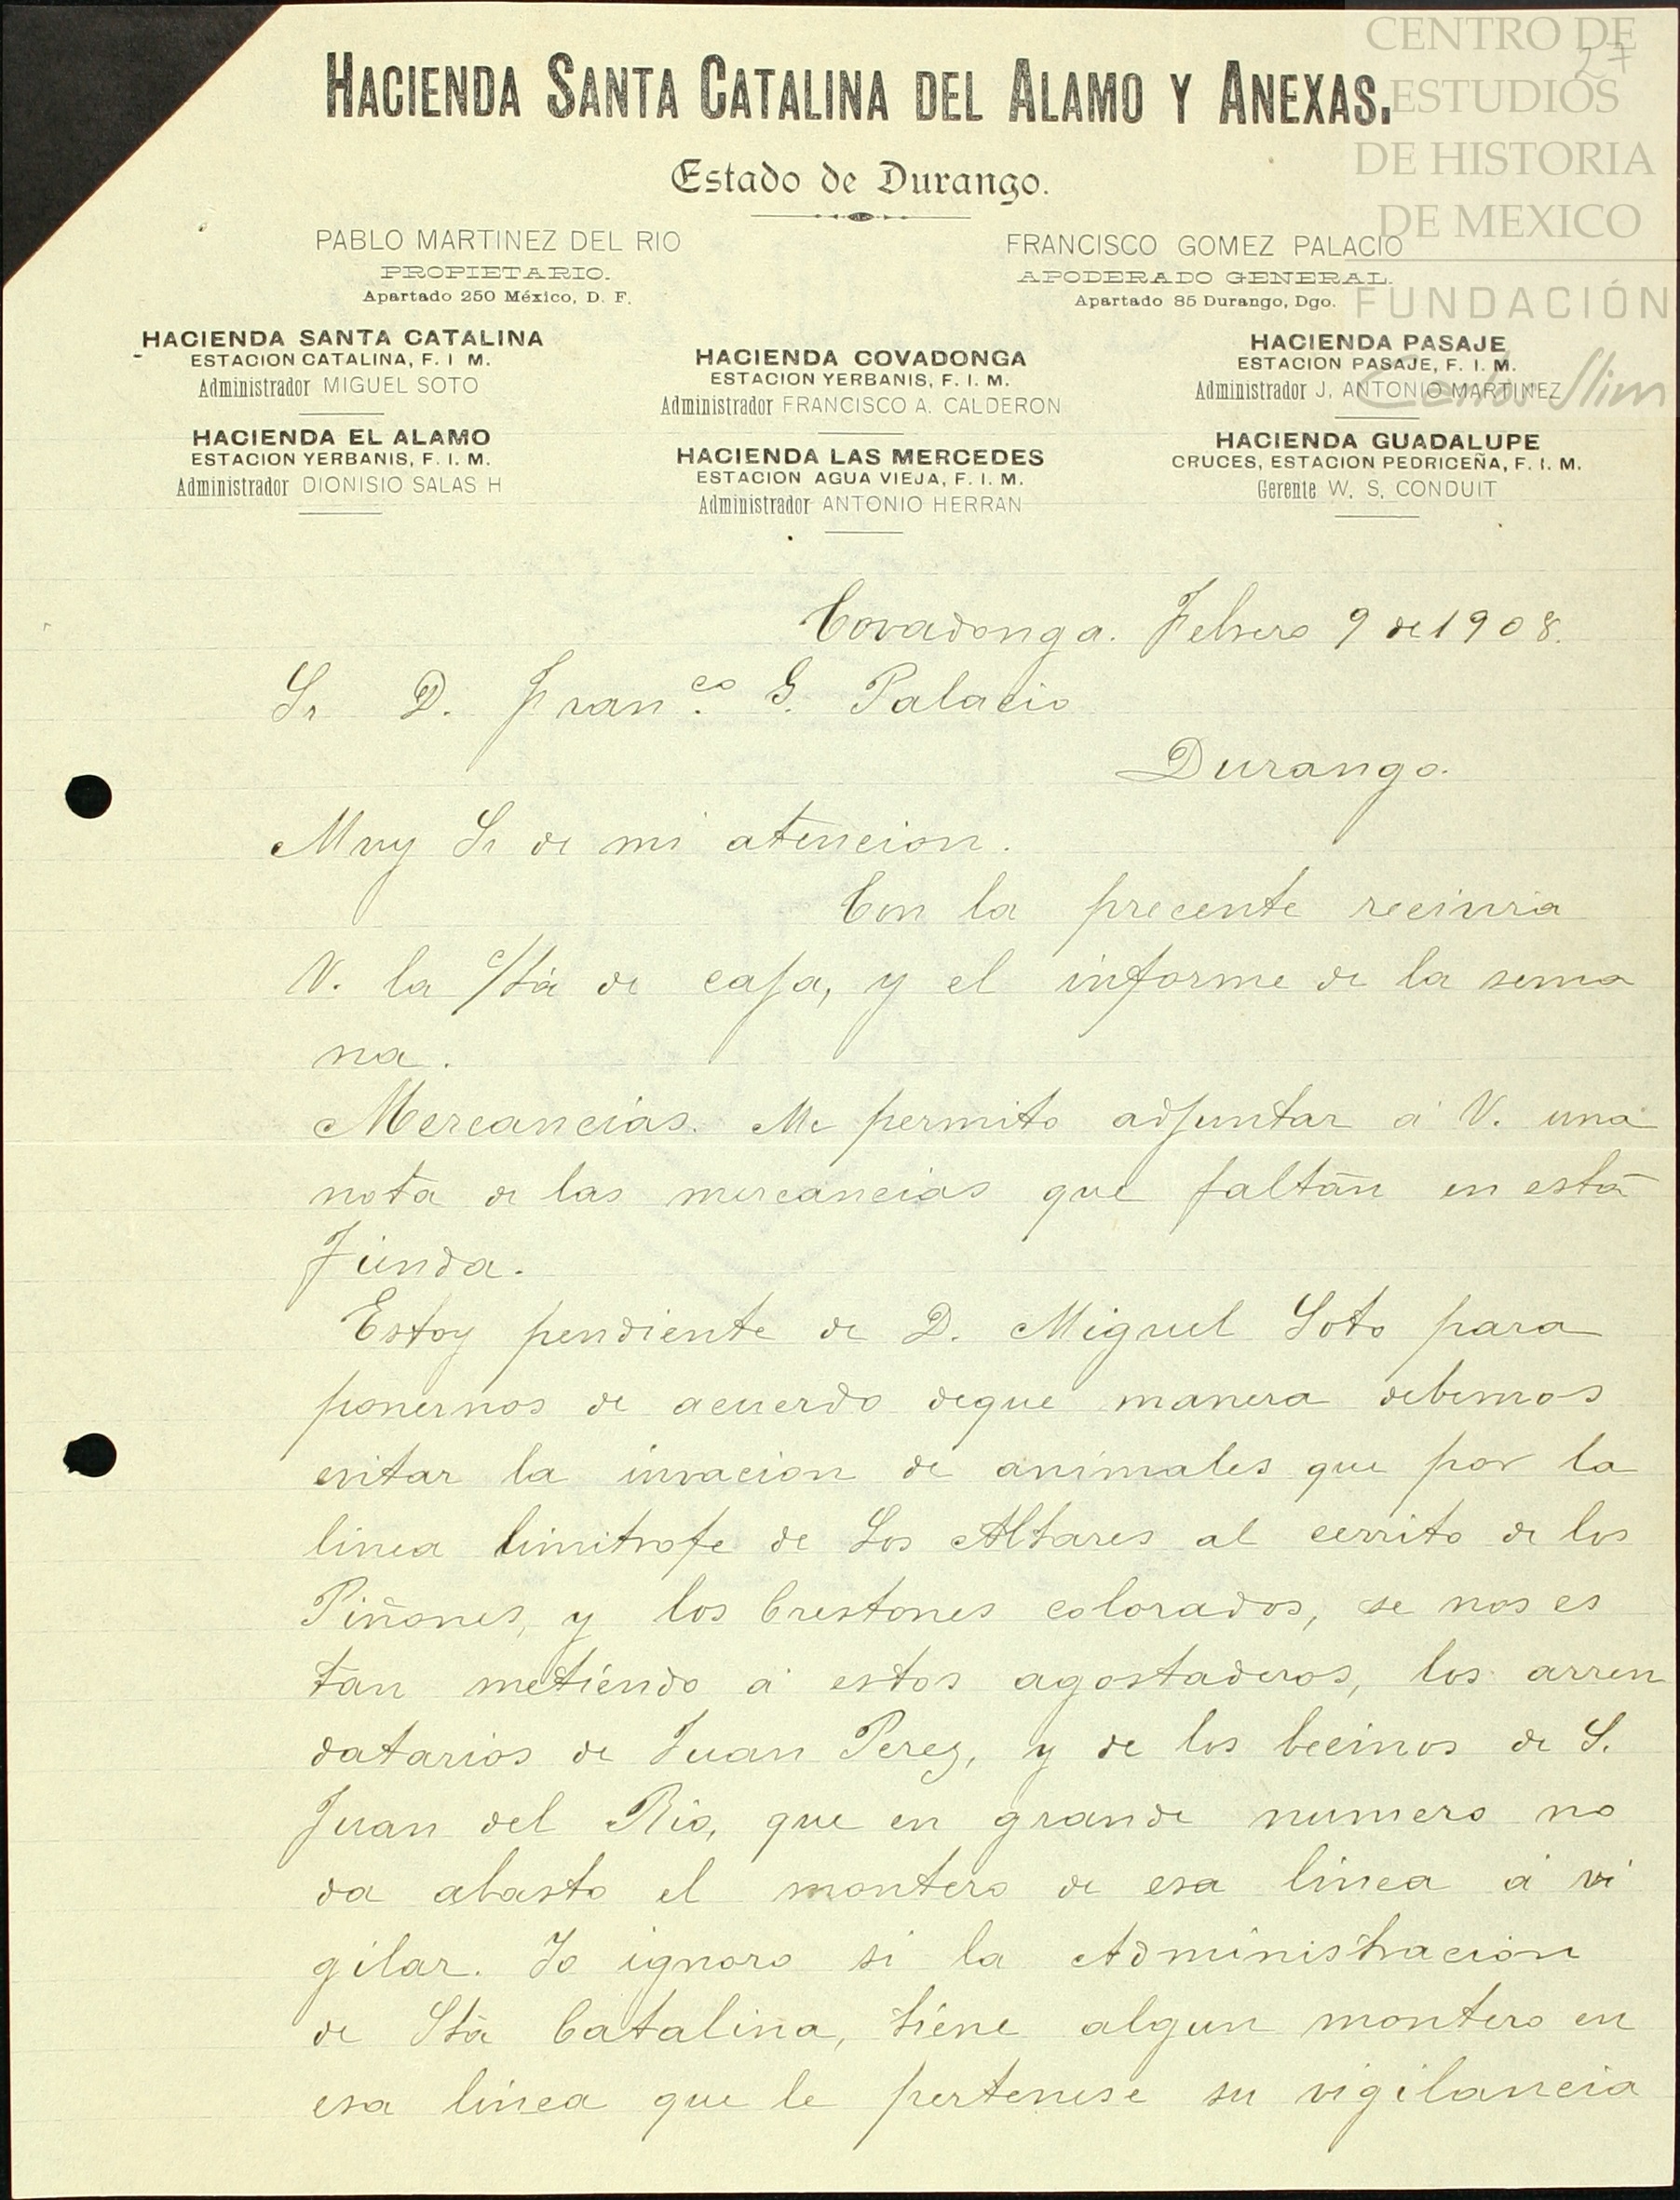 CENTRO DE
ESTUDIOS
DE HISTORIA
DE MEXICO
FUNDACIÓN
Carlos Slim
27
HACIENDA SANTA CATALINA DEL ALAMO Y ANEXAS.
Estado de Durango.
PABLO MARTINEZ DEL RIO
PROPIETARIO.
Apartado 250 México, D. F.
FRANCISCO GOMEZ PALACIO
APODERADO GENERAL.
Apartado 85 Durango, Dgo.
HACIENDA SANTA CATALINA
ESTACION CATALINA, F. I M.
Administrador MIGUEL SOTO
HACIENDA COVADONGA
ESTACION YERBANIS, F. I. M.
Administrador FRANCISCO A. CALDERON
HACIENDA PASAJE
ESTACION PASAJE, F. I. M.
Administrador J. ANTONIO MARTINEZ
HACIENDA EL ALAMO
ESTACION YERBANIS, F. I. M.
Administrador DIONISIO SALAS H
HACIENDA LAS MERCEDES
ESTACION AGUA VIEJA, F. I. M.
Administrador ANTONIO HERRAN
HACIENDA GUADALUPE
CRUCES, ESTACION PEDRICEÑA, F. I. M.
Gerente W. S. CONDUIT
Covadonga. Febrero 9 de 1908.
Sr D. Fran.co G. Palacio
Durango.
Muy Sr de mi atencion.
Con la precente recivira
V. la c/ta de caja, y el informe de la sema
na.
Mercancias. Me permito adjuntar á V. una
nota de las mercancias que faltan en esta
Tienda.
Estoy pendiente de D. Miguel Soto para
ponernos de acuerdo deque manera debemos
evitar la invacion de animales que por la
linea limitrofe de Los Altares al cerrito de los
Piñones, y los Crestones colorados, se nos es
tan metiendo á estos agostaderos, los arren
datarios de Juan Perez, y de los becinos de S.
Juan del Rio, que en grande numero no
da abasto el montero de esa linea á vi
gilar. Yo ignoro si la Administracion
de Sta Catalina, tiene algun montero en
esa linea que le pertenese su vigilancia